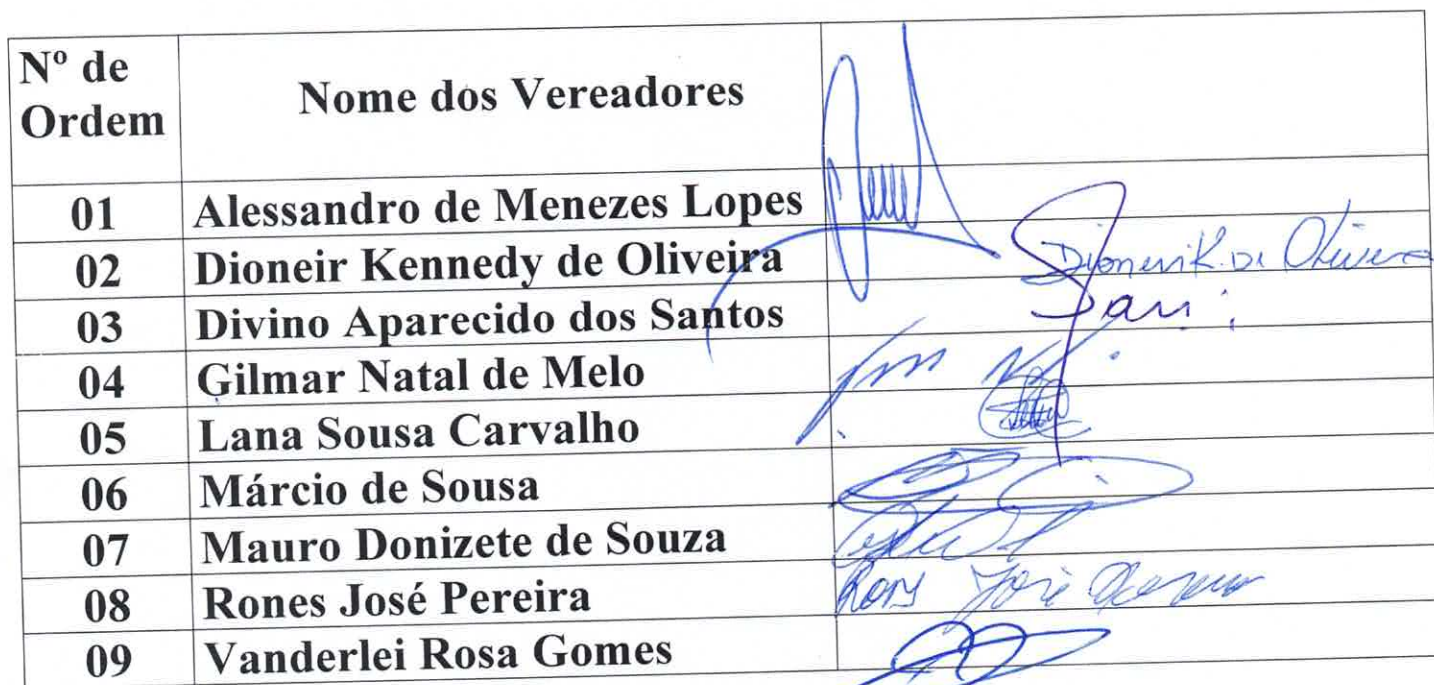 Nº de Ordem Nome dos Vereadores
01 Alessandro de Menezes Lopes
02 Dioneir Kennedy de Oliveira Dioneir K. de Oliveira
03 Divino Aparecido dos Santos
04 Gilmar Natal de Melo
05 Lana Sousa Carvalho
06 Márcio de Sousa
07 Mauro Donizete de Souza
08 Rones José Pereira José
09 Vanderlei Rosa Gomes